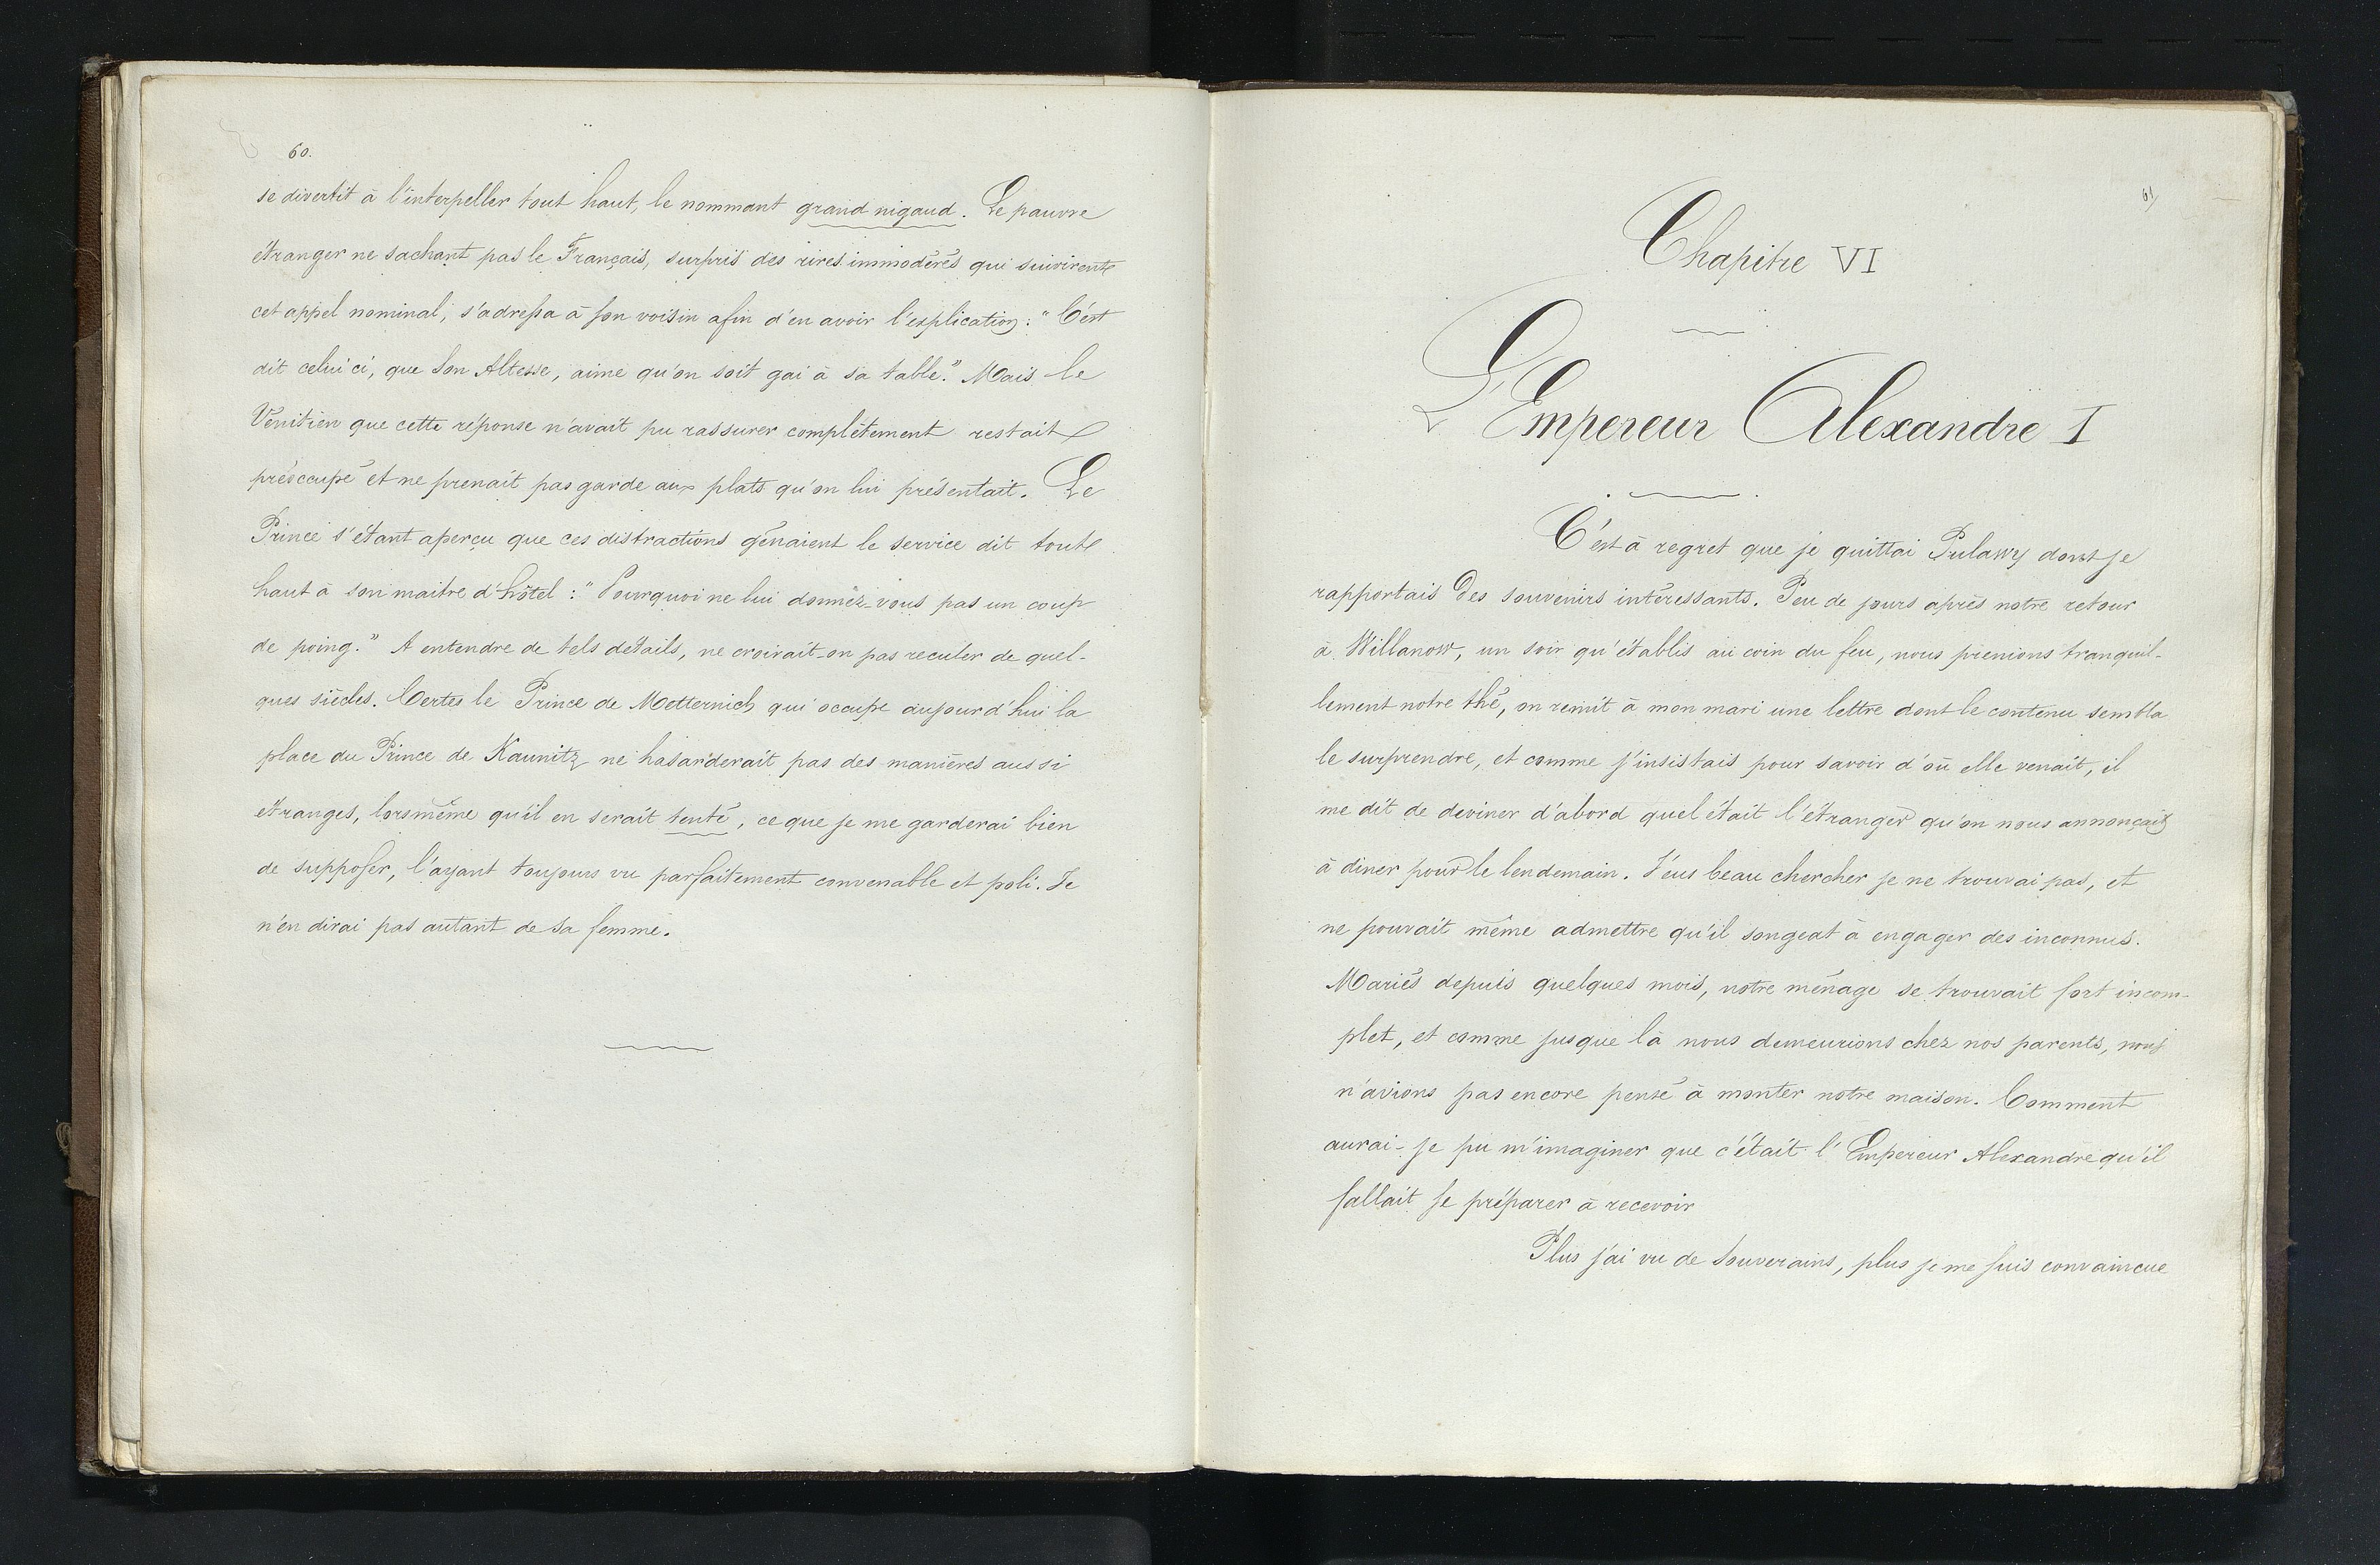 60.
se divertit à l'interpeller tout haut, le nommant grand nigaud. Le pauvre
étranger ne sachant pas le Français, surpris des rires immodérés qui suivirent
cet appel nominal, s'adressa à son voisin afin d'en avoir l'explication: "C'est
dit celui ci, que Son Altesse, aime qu'on soit gai à sa table." Mais le
Vénitien que cette réponse n'avait pu rassurer complètement restait
préoccupé et ne prenait pas garde aux plats qu'on lui présentait. Le
Prince s'étant aperçu que ces distractions gênaient le service dit tout
haut à son maitre d'hôtel: "Pourquoi ne lui donnez-vous pas un coup
de poing." A entendre de tels détails, ne croirait-on pas reculer de quel-
ques siècles. Certes le Prince de Metternich qui occupe aujourd'hui la
place du Prince de Kaunitz ne hasarderait pas des manières aussi
étranges, lorsmême qu'il en serait tenté, ce que je me garderai bien
de supposer, l'ayant toujours vu parfaitement convenable et poli. Je
n'en dirai pas autant de sa femme.
61
Chapitre VI
L'Empereur Alexandre I
C'est à regret que je quittai Pulawy dont je
rapportais des souvenirs intéressants. Peu de jours après notre retour
à Willanow, un soir qu'établis au coin du feu, nous prenions tranquil-
lement notre thé, on remit à mon mari une lettre dont le contenu sembla
le surprendre, et comme j'insistais pour savoir d'où elle venait, il
me dit de deviner d'abord quel était l'étranger qu'on nous annonçait
à diner pour le lendemain. J'eus beau chercher je ne trouvai pas, et
ne pouvait même admettre qu'il songeat à engager des inconnus.
Mariés depuis quelques mois, notre ménage se trouvait fort incom-
plet, et comme jusque là nous demeurions chez nos parents, nous
n'avions pas encore pensé à monter notre maison. Comment
aurai-je pu m'imaginer que c'était l'Empereur Alexandre qu'il
fallait se préparer à recevoir
Plus j'ai vu de Souverains, plus je me suis convaincue